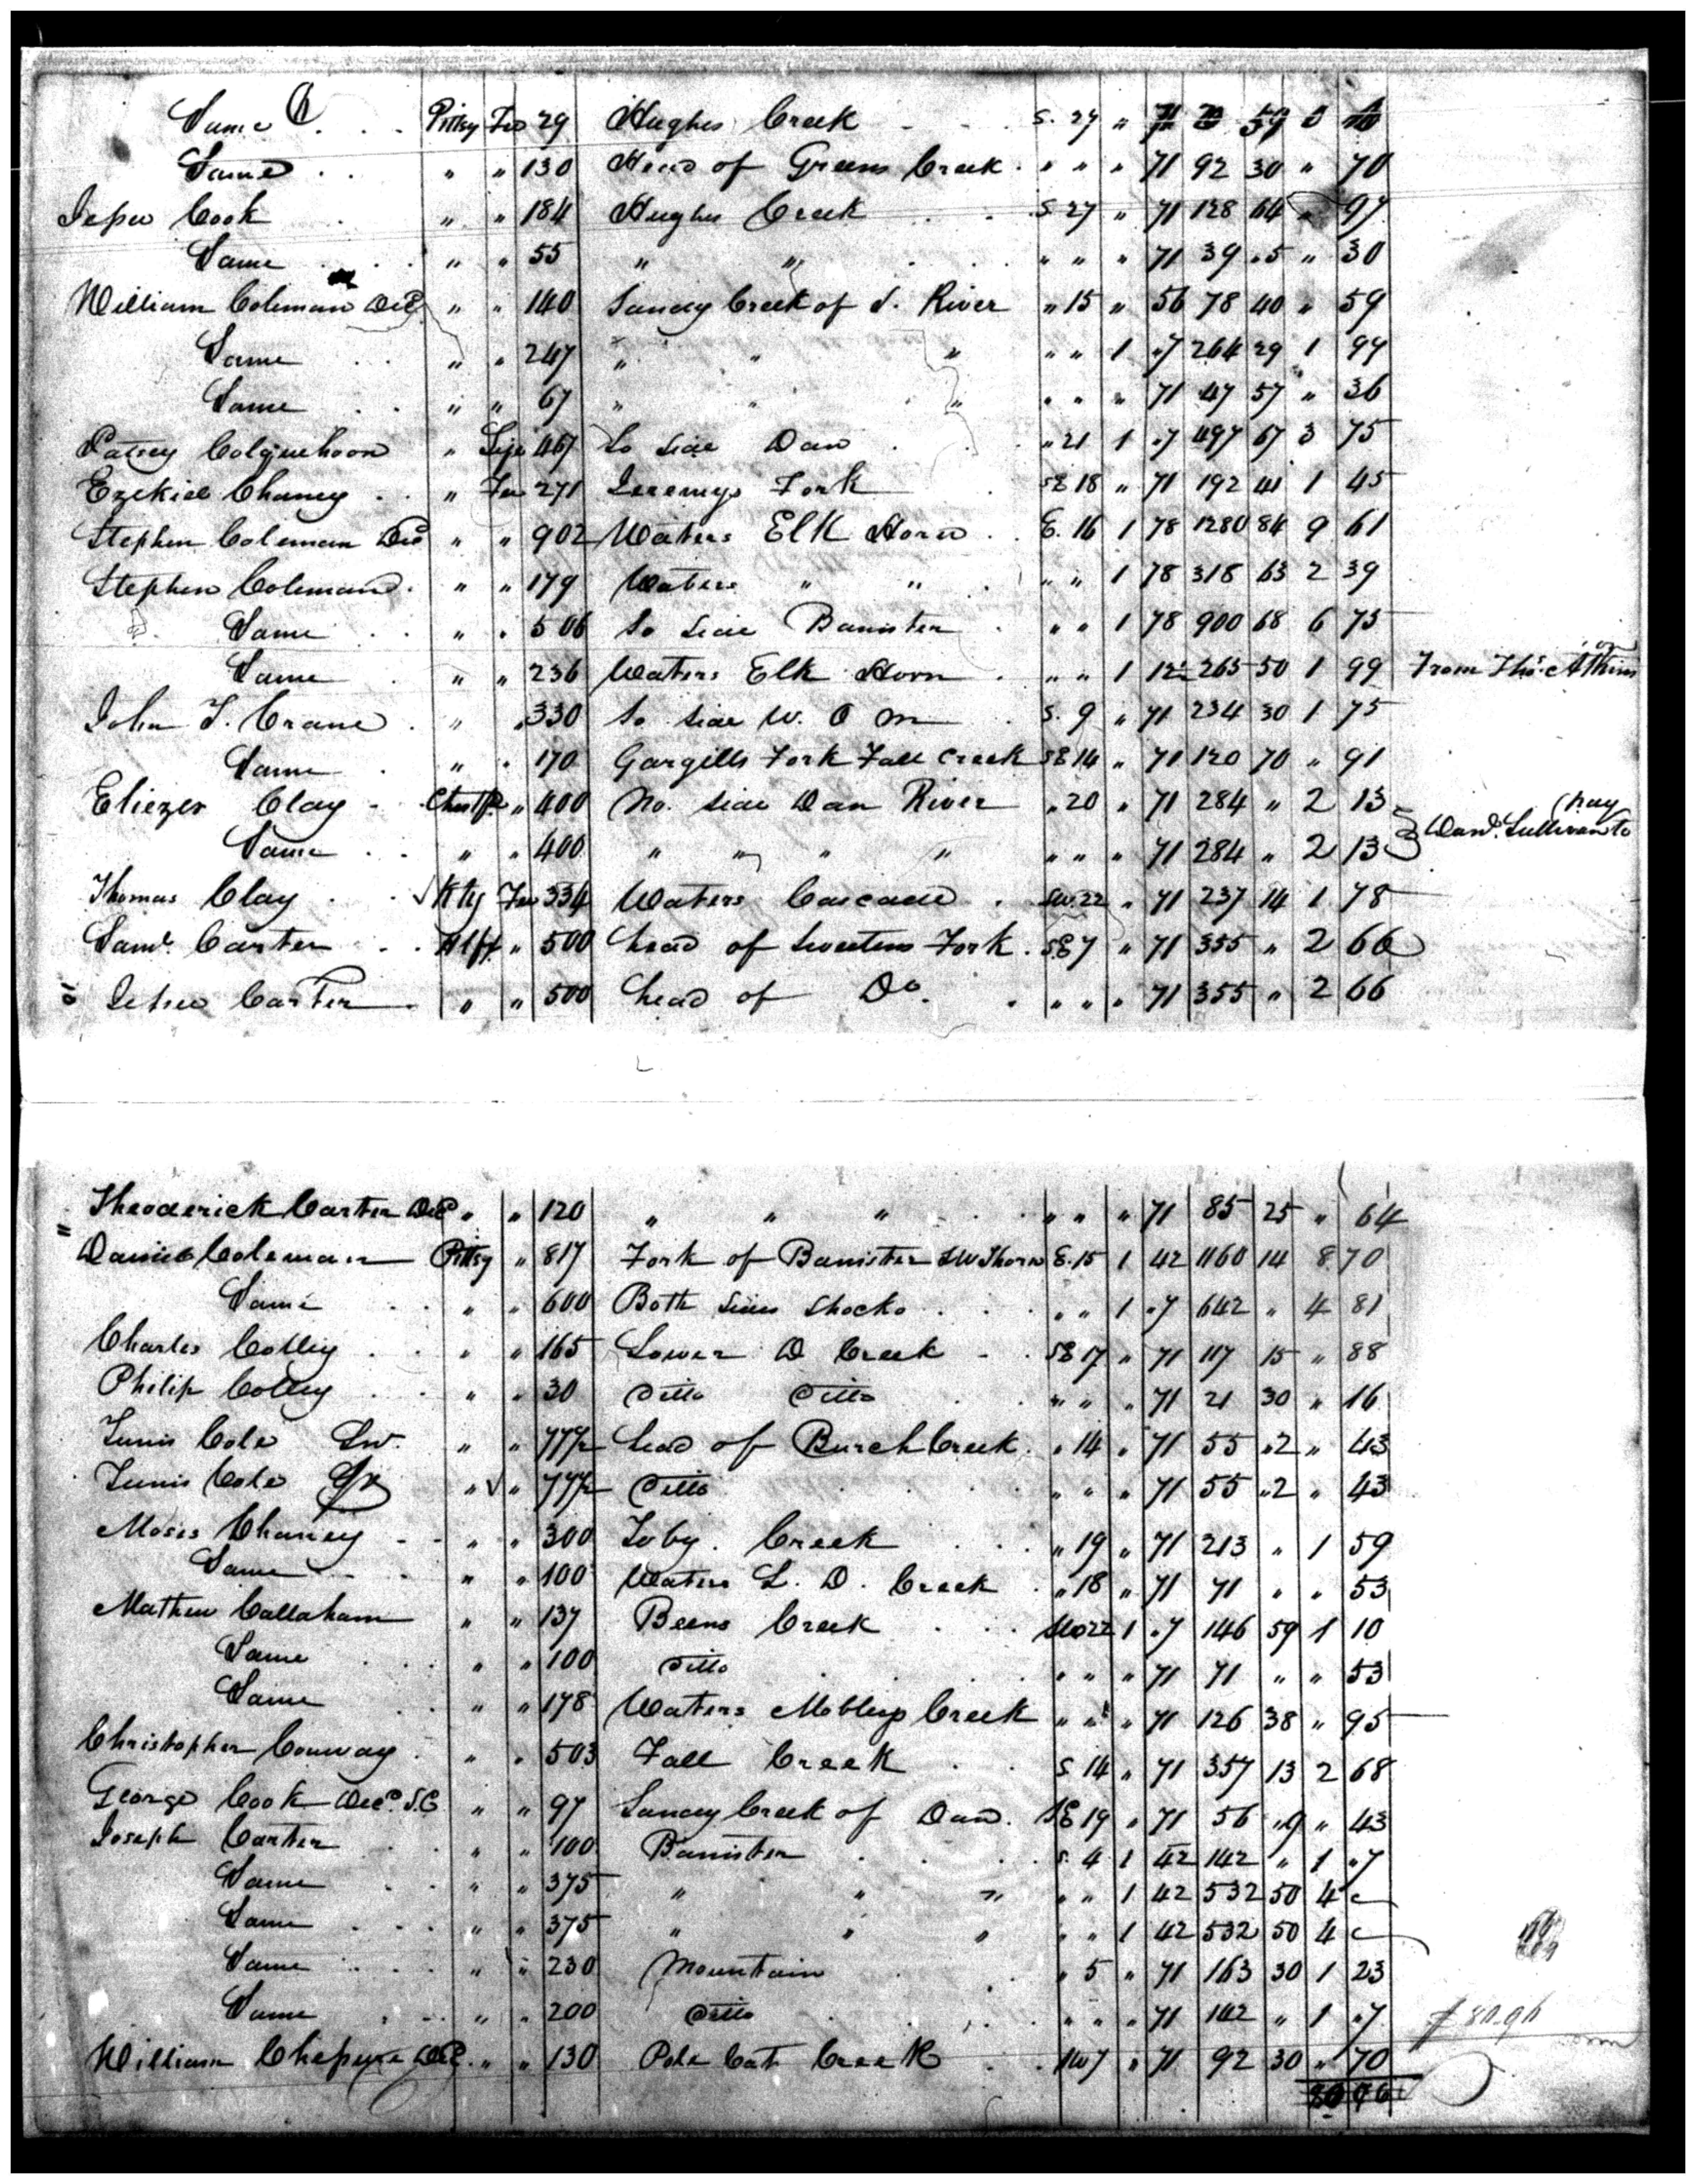 Same . . . Pittsy Fee 29 Hughes Creek - - - S. 27 "
Same . . " " 130 Head of Greens Creek . " " " 71 92 30 " 70
Cook . " " 184 Hughes Creek . . S. 27 " 71 128 64 " 97
Same . . . " " 55 " " . . . " " " 71 39 .5 " 30
William Coleman Decd " " 140 Sandy Creek of S. River " 15 " 56 78 40 " 59
Same . . " " 247 " " " " " 1 .7 264 29 1 99
Same . . " " 67 " " " " " " 71 47 57 " 36
Patsey Colquehoon " Life 467 So Side Dan . . " 21 1 .7 497 67 3 75
Ezekiel Chaney . . " Fee 271 Jeremys Fork . SE 18 " 71 192 41 1 45
Stephen Coleman Decd " " 902 Waters Elk Horn . . E. 16 1 78 1280 84 9 61
Stephen Coleman . " " 179 Waters " " . " " 1 78 318 63 2 39
Same . . " " 506 So Side Banister . " " 1 78 900 68 6 75
Same . " " 236 Waters Elk Horn . " " 1 12½ 265 50 1 99 From Thos. C Atkinson
John T. Crane . " " 330 So Side W. O M . S. 9 " 71 234 30 1 75
Same . " " 170 Gargills Fork Fall Creek SE 14 " 71 120 70 " 91
Eliezer Clay - Chestfd " 400 No. Side Dan River " 20 " 71 284 " 2 13
Same . . " " 400 " " " " " " " 71 284 " 2 13 Danl. Sullivan to pay
Thomas Clay . . Kty Fee 334 Waters Cascade . SW. 22 " 71 237 14 1 78
Saml. Carter . . Hlfx " 500 head of Sweetens Fork . SE 7 " 71 355 " 2 66
10 Jesse Carter . " " 500 head of Do. . " " " 71 355 " 2 66
Theoderick Carter Decd " " 120 " " " . . . " " " 71 85 25 " 64
11 Daniel Coleman Pittsy " 817 Fork of Banister & W Thorn E. 15 1 42 1160 14 8 70
Same . . " " 600 Both Sides Shocko . . . " " 1 .7 642 " 4 81
Charles Colley . . " " 165 Lower D Creek - . SE 17 " 71 117 15 " 88
Philip Colley . . " " 30 Ditto Ditto . . " " " 71 21 30 " 16
Tunis Cole Snr. " " 77½ head of Burch Creek . " 14 " 71 55 .2 " 43
Tunis Cole Jr " " 77½ Ditto . . . " " " 71 55 .2 " 43
Moses Chaney - - " " 300 Toby. Creek . . . " 19 " 71 213 " 1 59
Same . . " " 100 Waters L. D. Creek . " 18 " 71 71 " " 53
Mathew Callaham " " 137 Beens Creek . . . SW 22 1 .7 146 59 1 10
Same . . . " " 100 Ditto . . . " " " 71 71 " " 53
Same . . " " 178 Waters Mobleys Creek " " " 71 126 38 " 95
Christopher Conway . " " 503 Fall Creek . . S 14 " 71 357 13 2 68
George Cook Decd. S.C " " 97 Sandy Creek of Dan. SE 19 " 71 56 .9 " 43
Joseph Carter . . " " 100 Banister . . . S. 4 1 42 142 " 1 .7
Same . . " " 375 " " " " " 1 42 532 50 4
Same . . . " " 375 " " " " " 1 42 532 50 4
Same . . . " " 230 Mountain . . " 5 " 71 163 30 1 23
Same . . . " " 200 Ditto . . . " " " 71 142 " 1 .7 $ 80.96
William Decd. " " 130 Pole Cat Creek . . NW 7 " 71 92 30 " 70
80 96